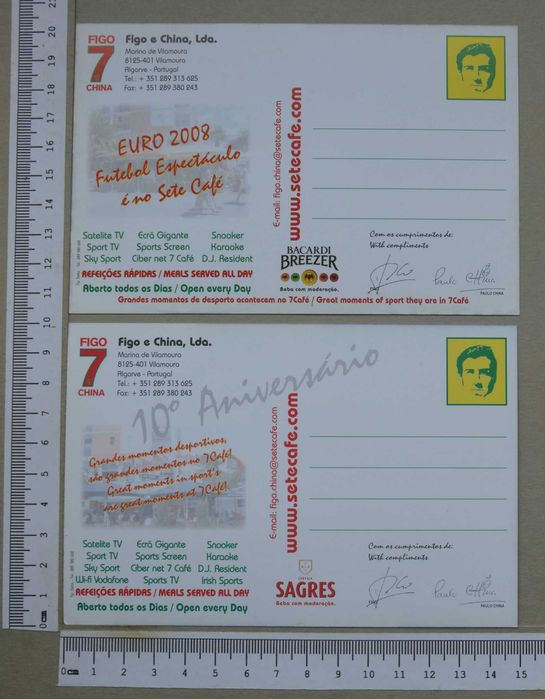 FIGO
7
CHINA
Figo e China, Lda.
Marina de Vilamoura
8125-401 Vilamoura
Algarve - Portugal
Tel.: + 351 289 313 625
Fax: + 351 289 380 243
EURO 2008
Futebol Espectáculo
é no Sete Café
Satelite TV Ecrã Gigante Snooker
Sport TV Sports Screen Karaoke
Sky Sport Ciber net 7 Café D.J. Resident
REFEIÇÕES RÁPIDAS / MEALS SERVED ALL DAY
Aberto todos os Dias / Open every Day
Grandes momentos de desporto acontecem no 7Café / Great moments of sport they are in 7Café
E-mail: figo.china@setecafe.com
www.setecafe.com
BACARDI
BREEZER
Beba com moderação.
Com os cumprimentos de:
With compliments
Paulo China
PAULO CHINA
FIGO
7
CHINA
Figo e China, Lda.
Marina de Vilamoura
8125-401 Vilamoura
Algarve - Portugal
Tel.: + 351 289 313 625
Fax: + 351 289 380 243
10º Aniversário
Grandes momentos desportivos,
são grandes momentos no 7Café!
Great moments in sport's
are great moments at 7Café!
Satelite TV Ecrã Gigante Snooker
Sport TV Sports Screen Karaoke
Sky Sport Ciber net 7 Café D.J. Resident
Wi-fi Vodafone Sports TV Irish Sports
REFEIÇÕES RÁPIDAS / MEALS SERVED ALL DAY
Aberto todos os Dias / Open every Day
E-mail: figo.china@setecafe.com
www.setecafe.com
SAGRES
Beba com moderação.
Com os cumprimentos de:
With compliments
Paulo China
PAULO CHINA
21
20
19
18
17
16
15
14
13
12
11
10
9
8
7
6
5
4
3
2
1
0cm
0cm 1 2 3 4 5 6 7 8 9 10 11 12 13 14 15